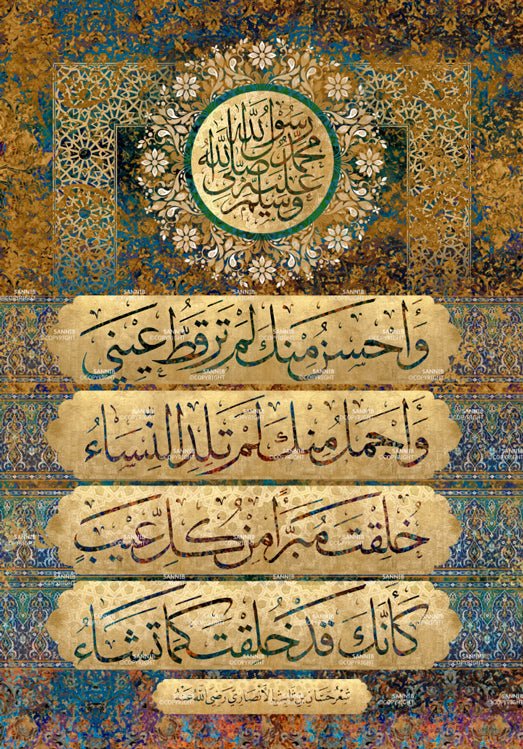 محمد رسول الله صلى الله عليه وسلم
وَأَحْسَنُ مِنْكَ لَمْ تَرَ قَطُّ عَيْنِي
وَأَجْمَلُ مِنْكَ لَمْ تَلِدِ النِّسَاءُ
خُلِقْتَ مُبَرَّأً مِنْ كُلِّ عَيْبٍ
كَأَنَّكَ قَدْ خُلِقْتَ كَمَا تَشَاءُ
شعر حسان بن ثابت الأنصاري رضي الله عنه
SANNIB
©COPYRIGHT